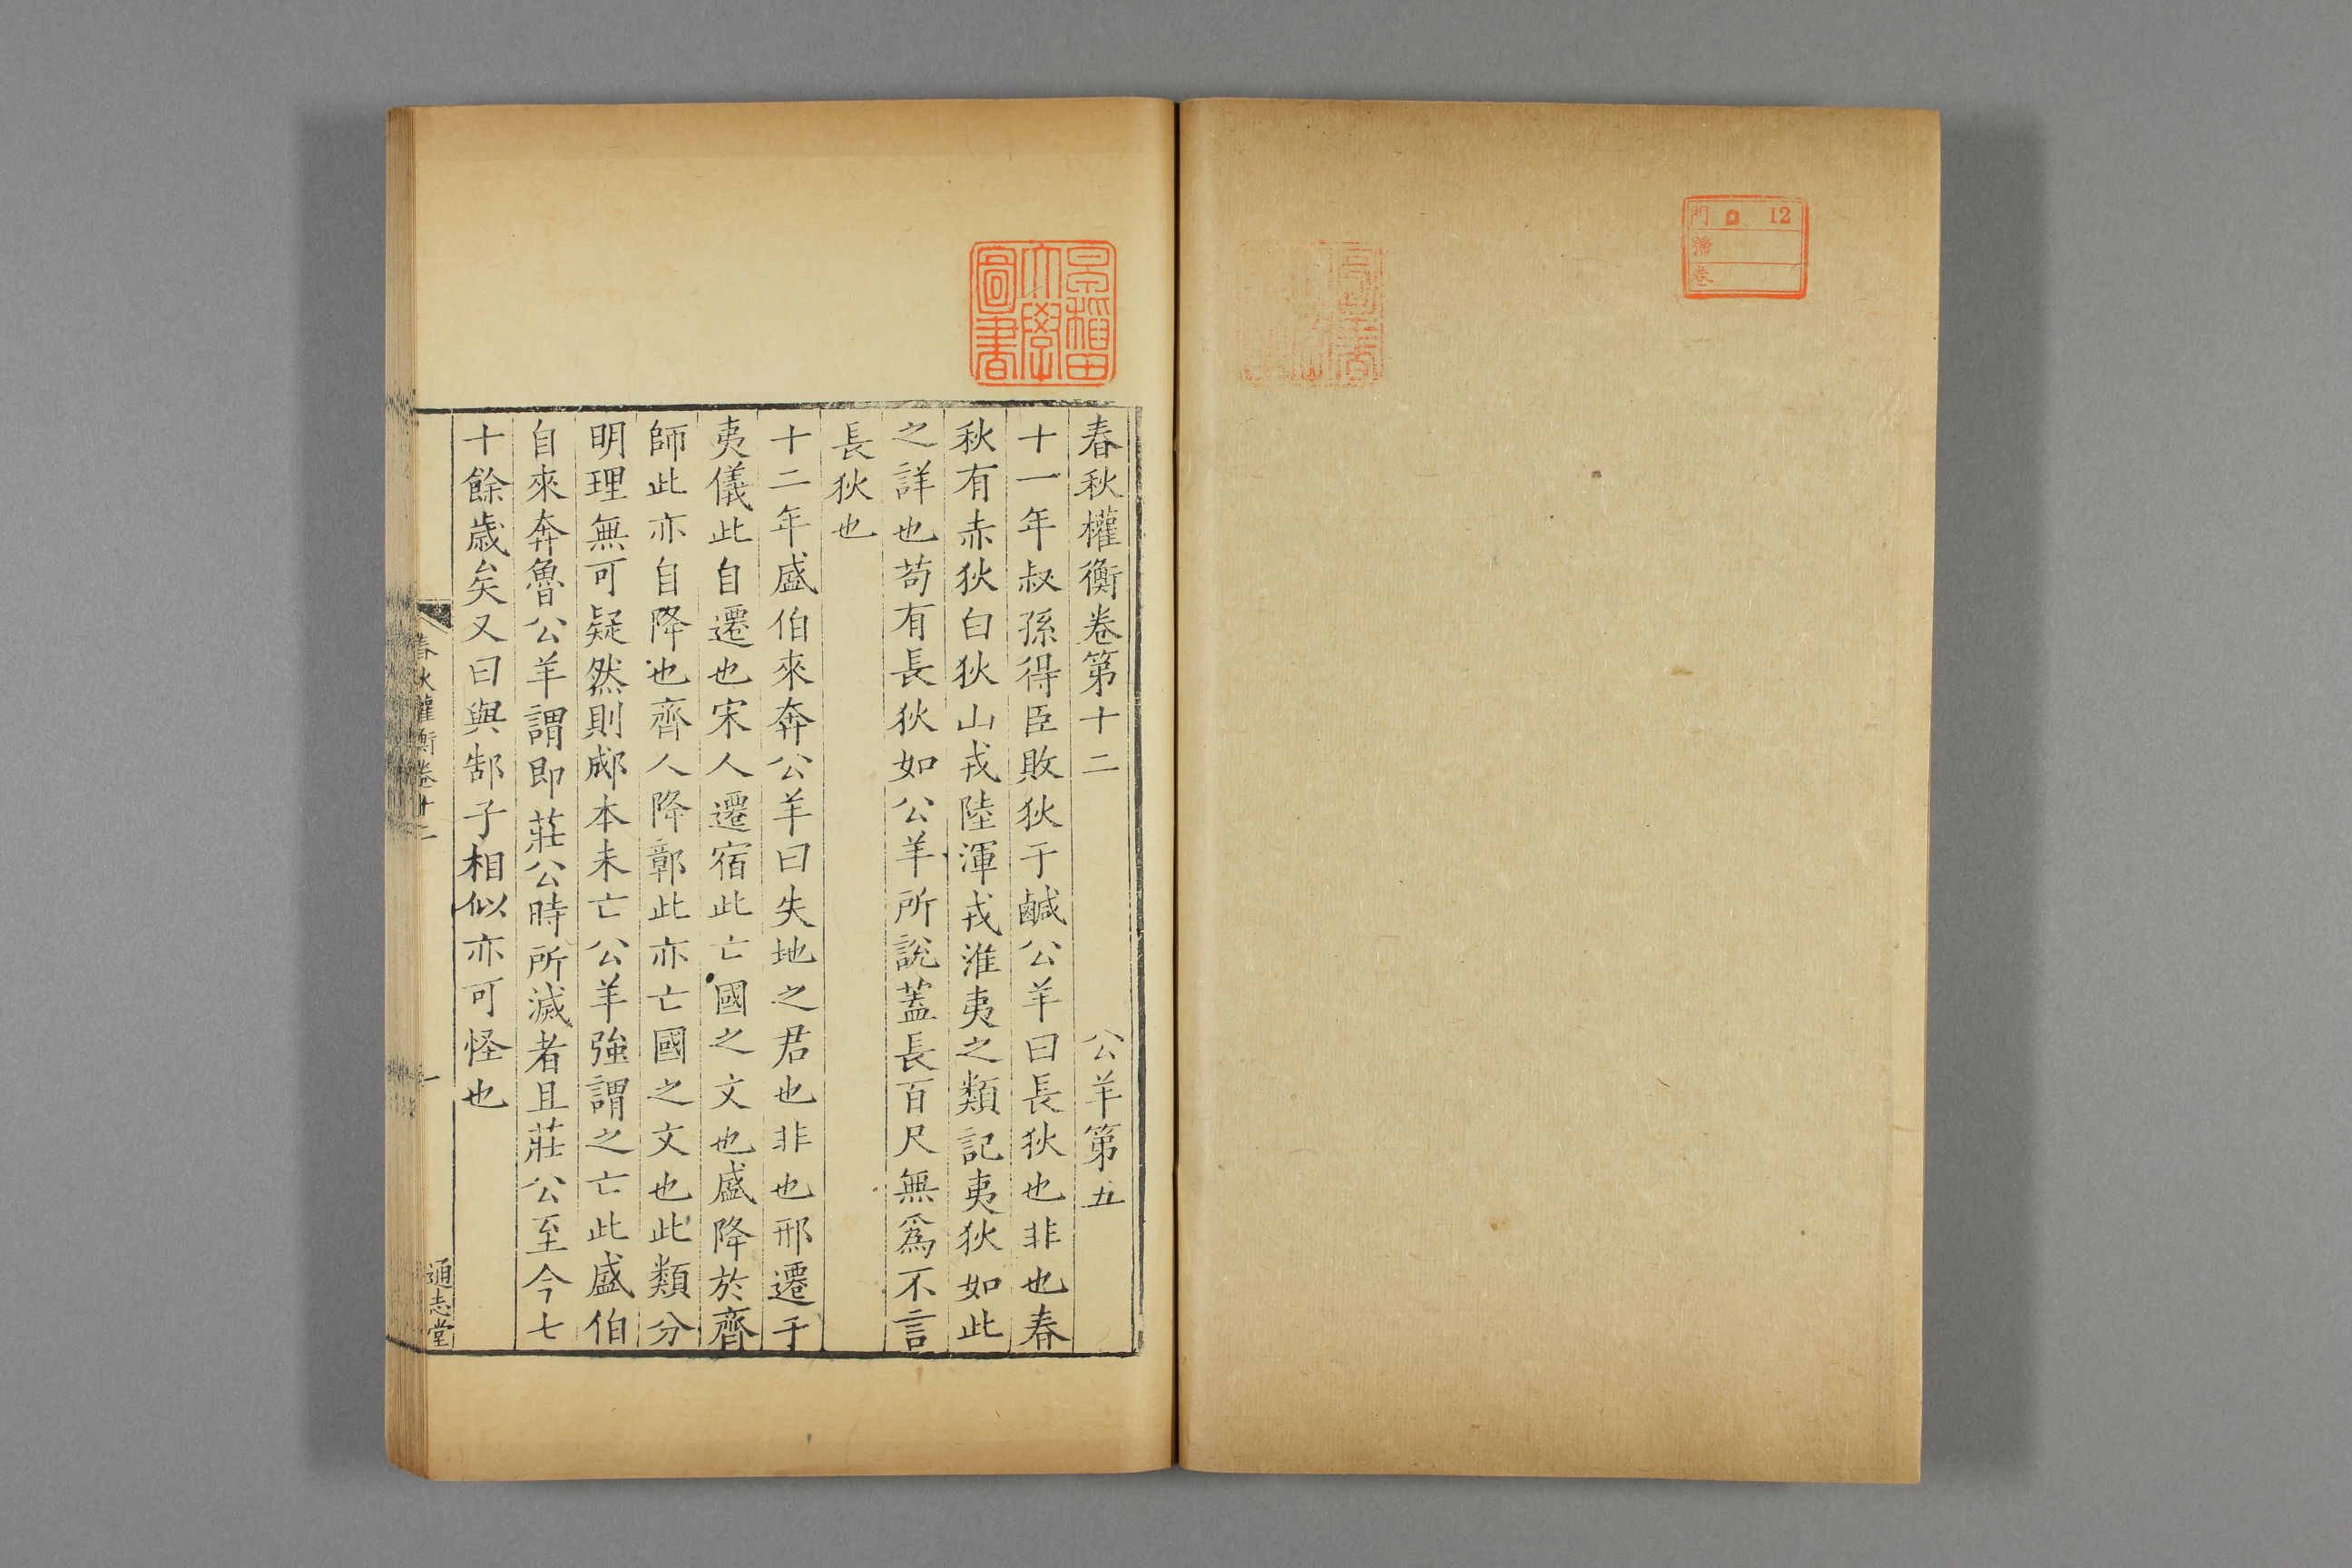 門 ロ 12
號
卷
早稻田
大學
圖書
春秋權衡卷第十二 公羊第五
十一年叔孫得臣敗狄于鹹公羊曰長狄也非也春
秋有赤狄白狄山戎陸渾戎淮夷之類記夷狄如此
之詳也苟有長狄如公羊所說蓋長百尺無爲不言
長狄也
十二年盛伯來奔公羊曰失地之君也非也邢遷于
夷儀此自遷也宋人遷宿此亡國之文也盛降於齊
師此亦自降也齊人降鄣此亦亡國之文也此類分
明理無可疑然則郕本未亡公羊強謂之亡此盛伯
自來奔魯公羊謂即莊公時所滅者且莊公至今七
十餘歲矣又曰與郜子相似亦可怪也
春秋權衡卷十二 一 通志堂